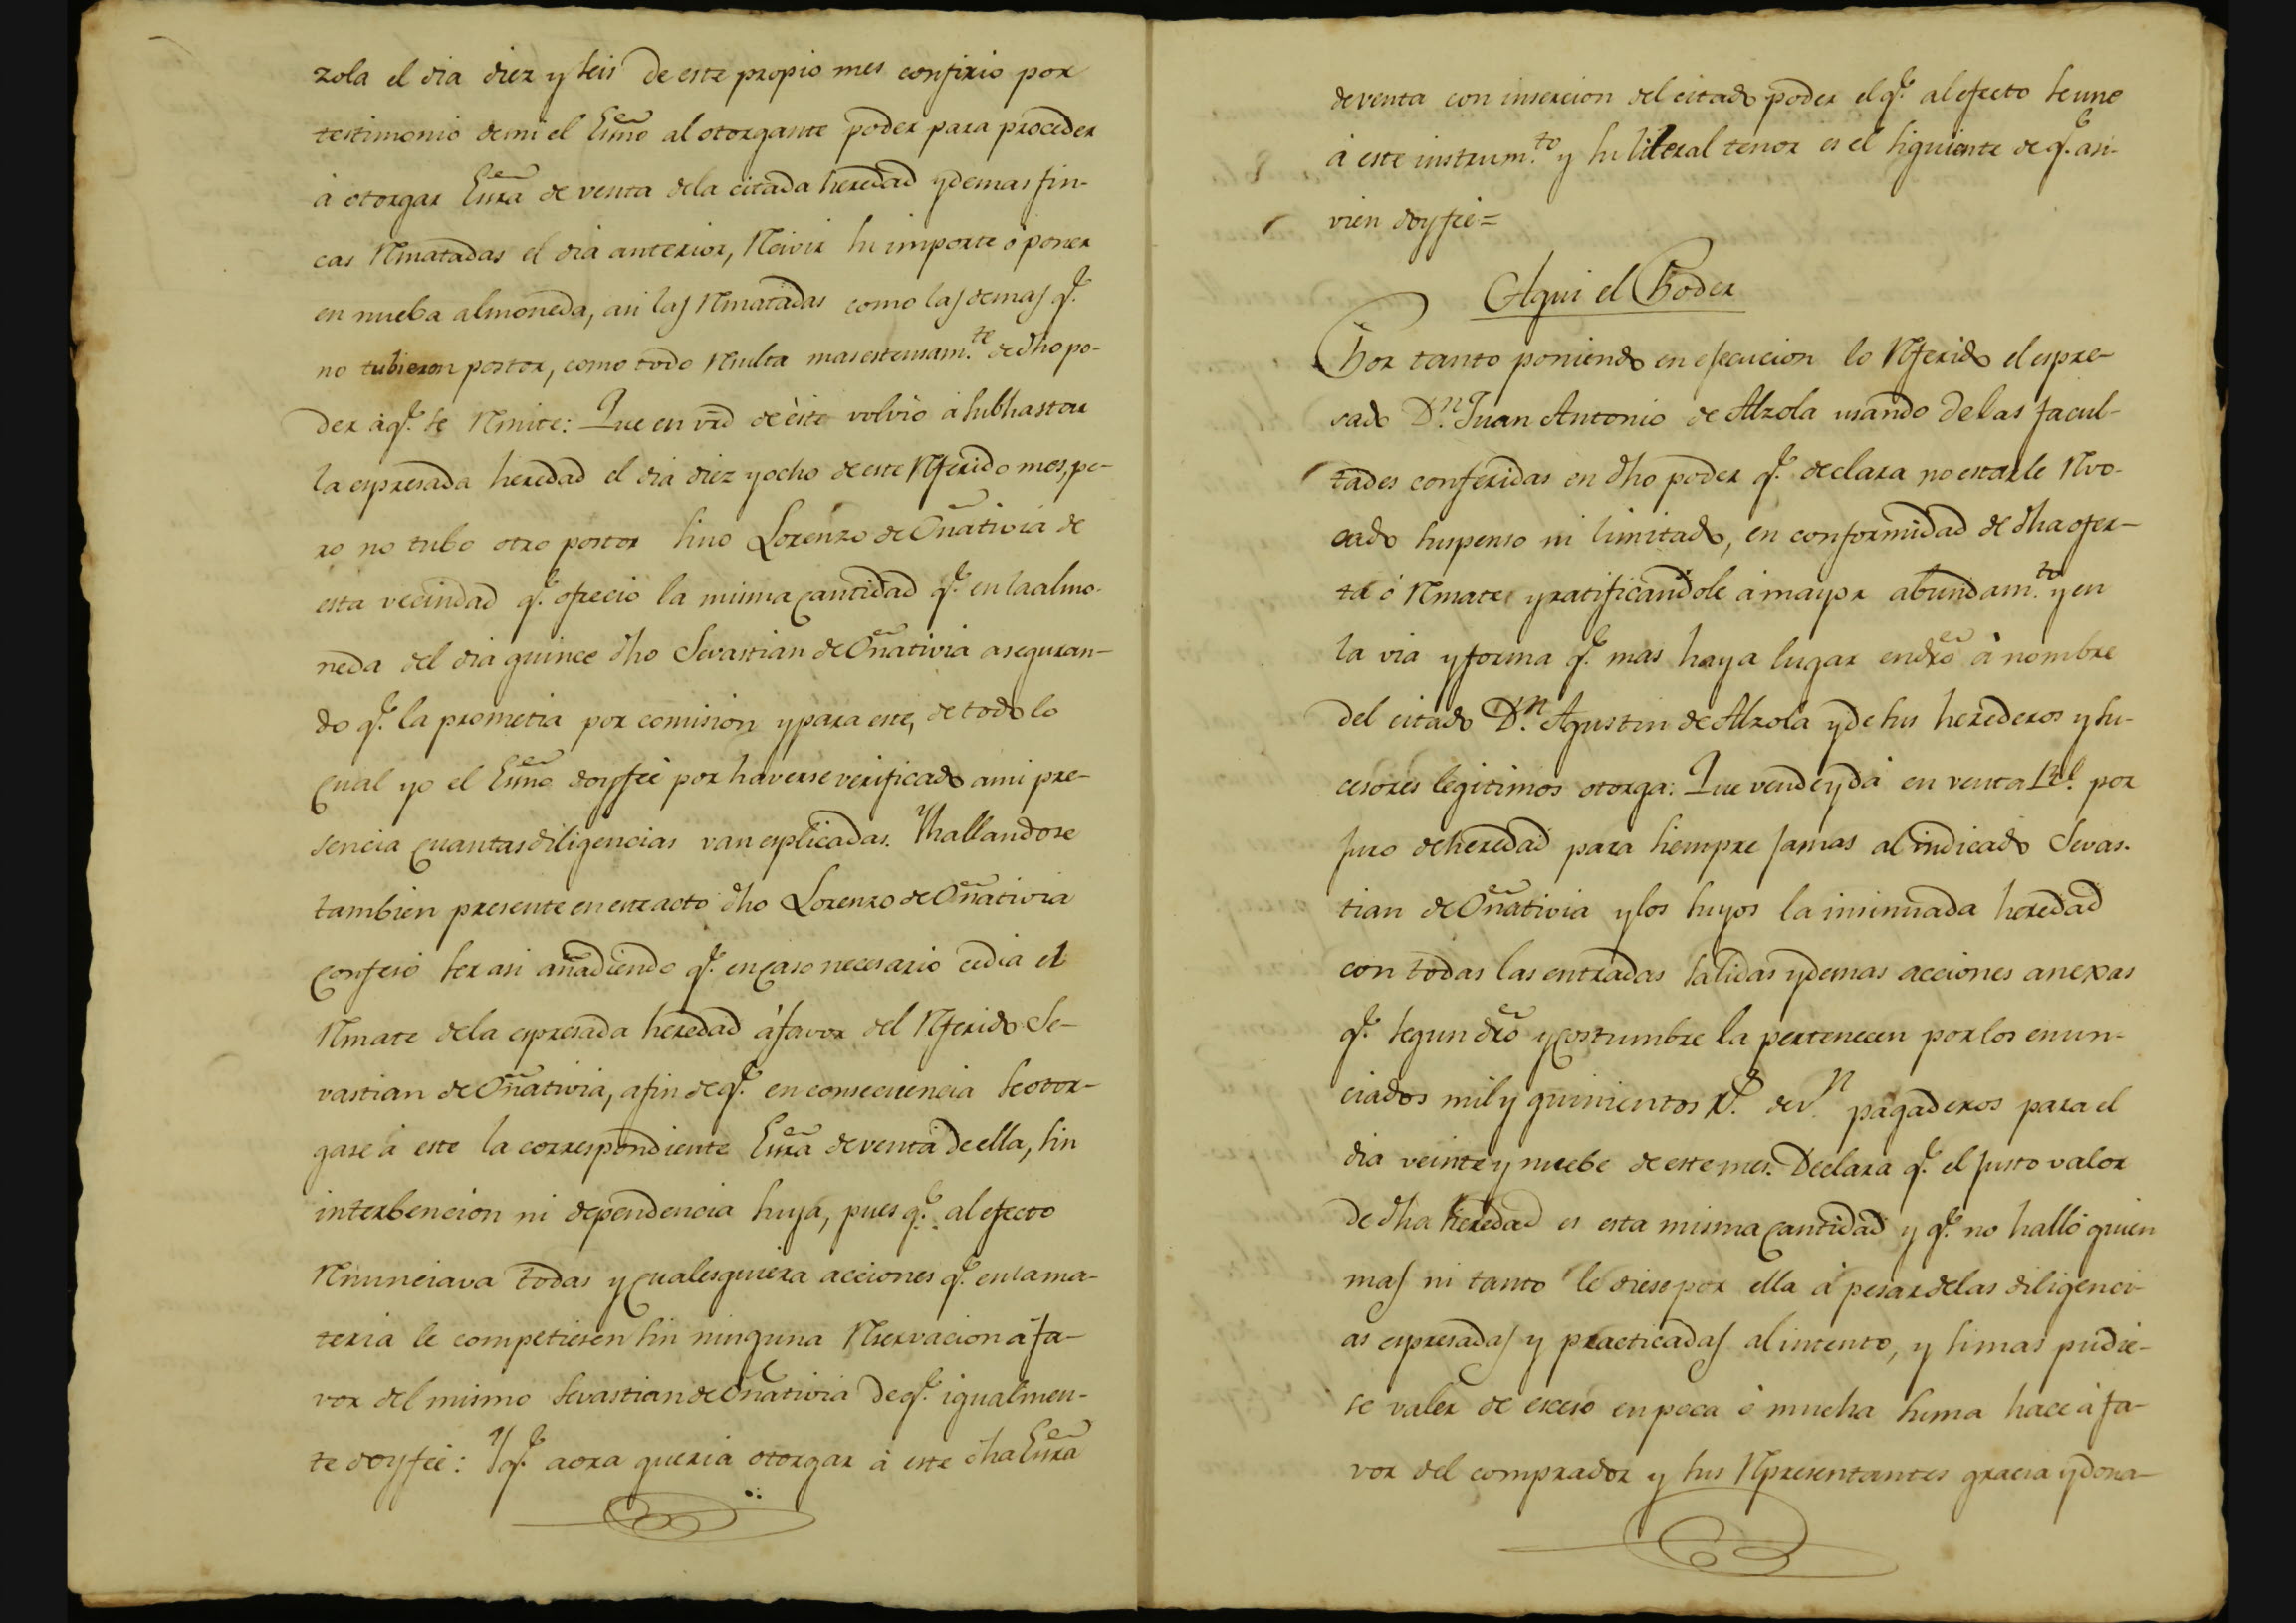 zola el dia diez y seis de este propio mes confirio por
testimonio de mi el Essno al otorgante poder para proceder
à otorgar Essra de venta dela citada heredad y demas fin-
cas Rmatadas el dia anterior, Rcivir su importe ó poner
en nueba almoneda, asi las Rmatadas como las demas q.e
no tubieron postor, como todo Rsulta mas estensam.te de dho po-
der à q.e se Rmite: Que en vrd de èste volvio à subhastar
la espresada heredad el dia diez y ocho de este Rferido mes, pe-
ro no tubo otro postor sino Lorenzo de Oñativia de
esta vecindad q.e ofrecio la misma cantidad q.e en la almo-
neda del dia quince dho Sevastian de Oñativia aseguran-
do q.e la prometia por comision y para este, de todo lo
cual yo el Essno doy fee por haverse verificado a mi pre-
sencia cuantas diligencias van esplicadas. Y hallandose
tambien presente en este acto dho Lorenzo de Oñativia
confesó ser asi añadiendo q.e en caso necesario cedia el
Rmate dela espresada heredad à favor del Rferido Se-
vastian de Oñativia, a fin de q.e en consecuencia se otor-
gase à este la correspondiente Essra de venta de ella, sin
interbencion ni dependencia suya, pues q.e al efecto
Rnunciava todas y cualesquiera acciones q.e en la ma-
teria le competiesen sin ninguna Rservacion à fa-
vor del mismo Sevastian de Oñativia de q.e igualmen-
te doy fee: Y q.e aora queria otorgar à este dha Essra
de venta con insercion del citado poder el q.e al efecto se une
à este instrum.to y su literal tenor es el siguiente de q.e asi-
vien doy fee=
Aqui el Poder
Por tanto poniendo en ejecucion lo Rferido el espre-
sado D.n Juan Antonio de Alzola usando de las facul-
tades conferidas en dho poder q.e declara no estarle Rvo-
cado suspenso ni limitado, en conformidad de dha ofer-
ta ó Rmate y ratificandole à mayor abundam.to y en
la via y forma q.e mas haya lugar en dro à nombre
del citado D.n Agustin de Alzola y de sus herederos y su-
cesores legitimos otorga: Que vende y dà en venta Rl. por
juro de heredad para siempre jamas al indicado Sevas-
tian de Oñativia y los suyos la insinuada heredad
con todas las entradas salidas y demas acciones anexas
q.e segun dro y costumbre la pertenecen por los enun-
ciados mil y quinientos R.s de v.n pagaderos para el
dia veinte y nuebe de este mes. Declara q.e el justo valor
de dha heredad es esta misma cantidad y q.e no halló quien
mas ni tanto le diese por ella à pesar delas diligenci-
as espresadas y practicadas al intento, y si mas pudie-
se valer de esceso en poca ó mucha suma hace à fa-
vor del comprador y sus Rpresentantes gracia y dona-